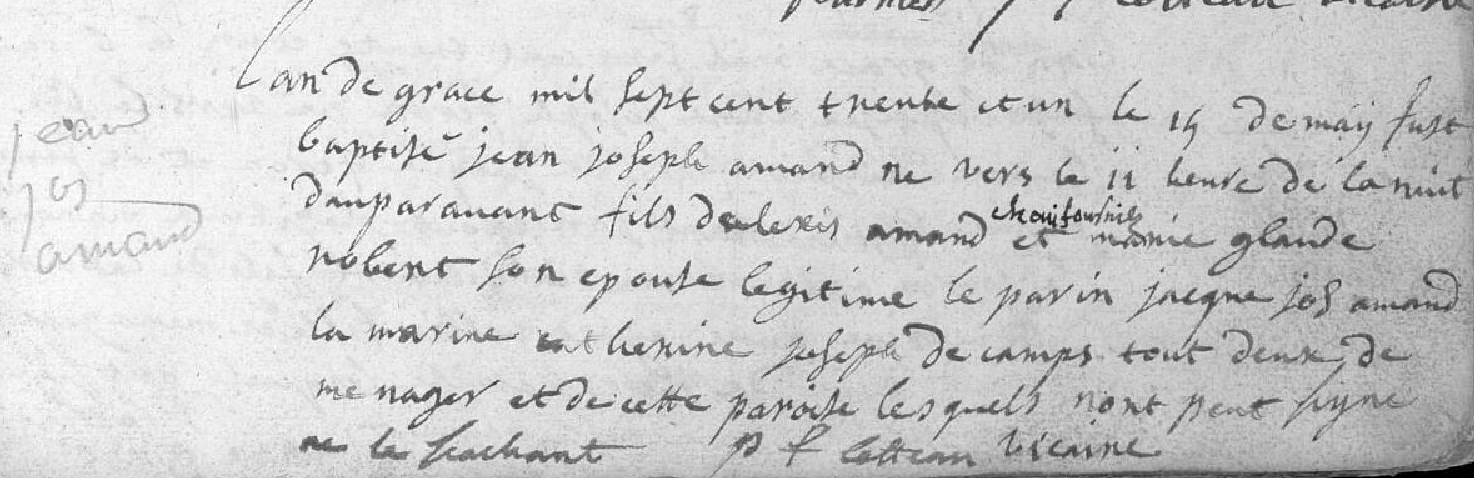 vicaire
Lan de grace mil sept cent trente et un le 15 de maÿ fust
jean
baptisé jean joseph amand ne vers le 11 heure de la nuit
jos
dauparavant fils dalexis amand chaufournier et marie glaude
amand
robert son epouse legitime le parin jacque jos amand
la marine catherine joseph decamps tout deux de
menager et de cette paroise lesquels nont peut signe
ne le sachant p f cotteau vicaire